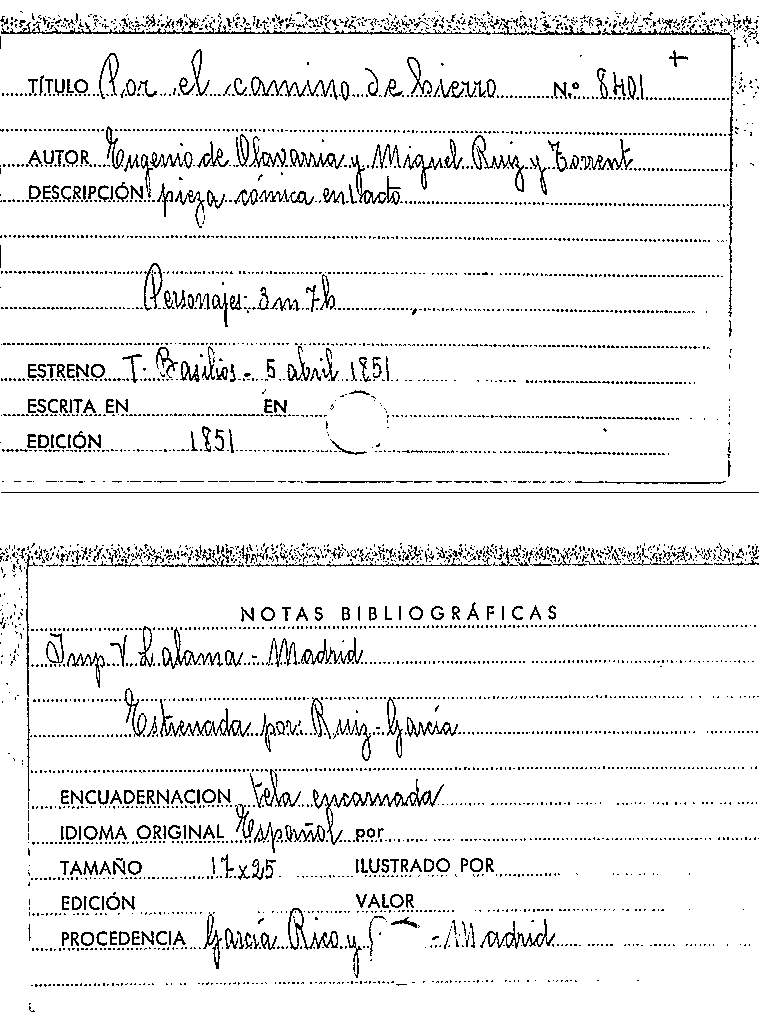 +
TÍTULO Por el camino de hierro N.º 8401
AUTOR Eugenio de Olavarria y Miguel Ruiz y Torrent
DESCRIPCIÓN pieza cómica en 1 acto
Personajes: 3 m 7 h
ESTRENO T. Basilios - 5 abril 1851
ESCRITA EN EN
EDICIÓN 1851
NOTAS BIBLIOGRÁFICAS
Imp V. Lalama - Madrid
Estrenada por: Ruiz - García
ENCUADERNACION tela encarnada
IDIOMA ORIGINAL Español por
TAMAÑO 17x25 ILUSTRADO POR
EDICIÓN VALOR
PROCEDENCIA García Rico y - Madrid